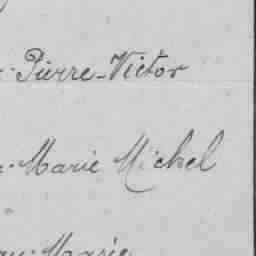 Pierre-Victor
Marie Michel
Marie